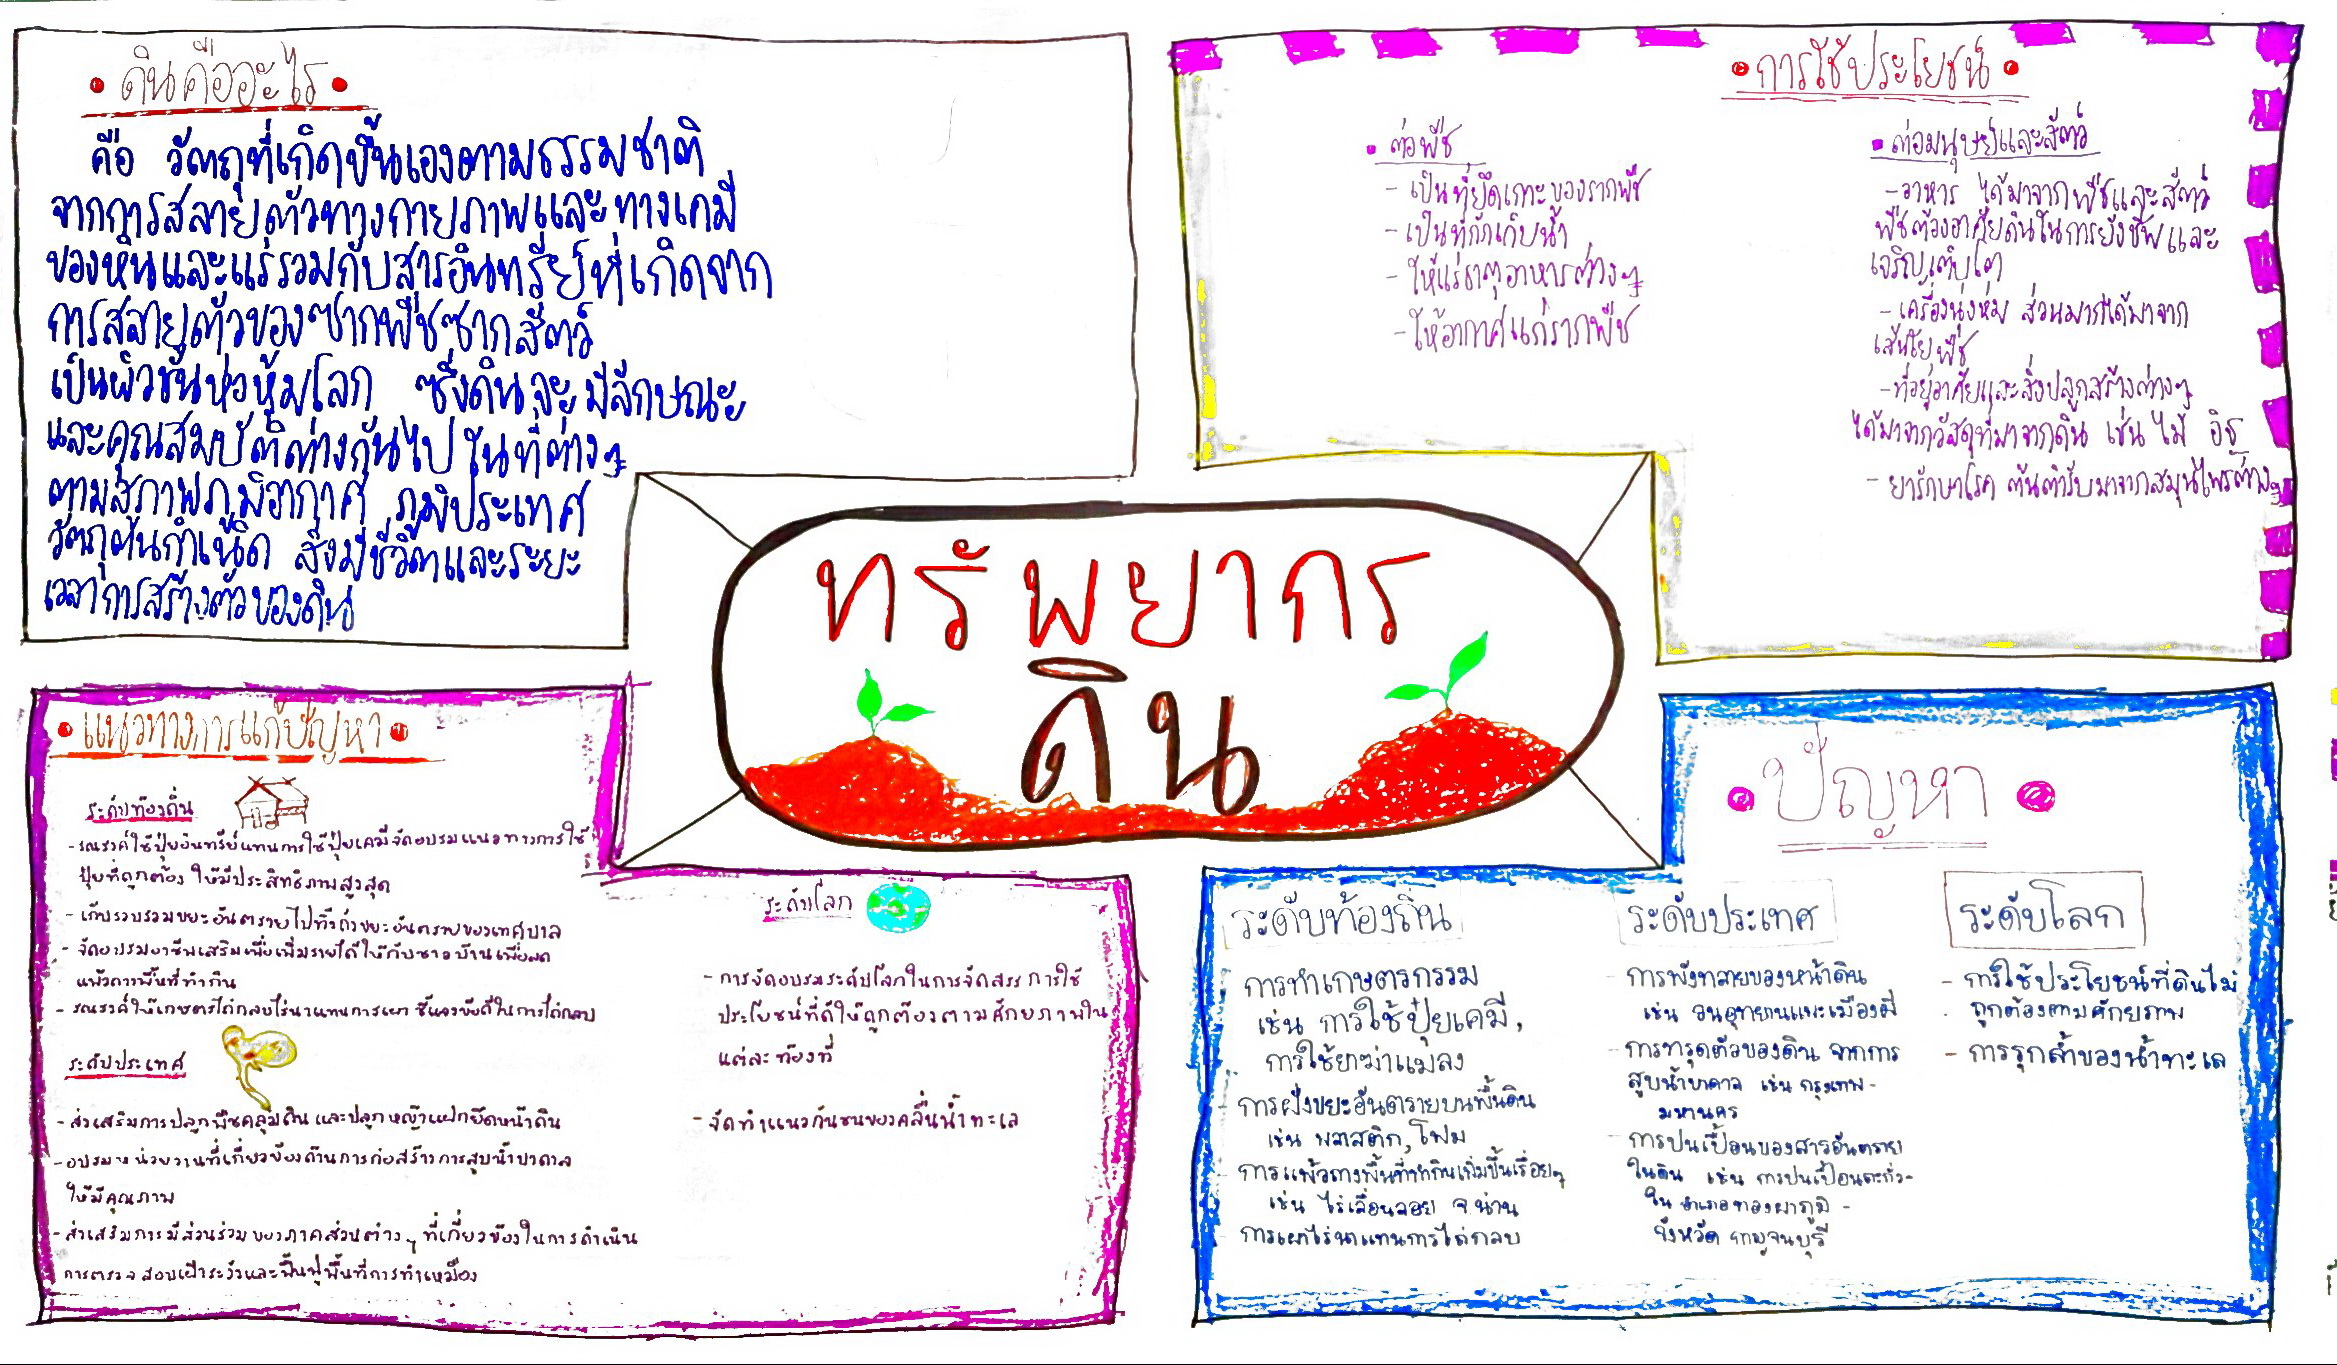 ดินคืออะไร
คือ วัตถุที่เกิดขึ้นเองตามธรรมชาติ
จากการสลายตัวทางกายภาพและทางเคมี
ของหินและแร่รวมกับสารอินทรีย์ที่เกิดจาก
การสลายตัวของซากพืชซากสัตว์
เป็นผิวชั้นห่อหุ้มโลก ซึ่งดินจะมีลักษณะ
และคุณสมบัติต่างกันไปในที่ต่างๆ
ตามสภาพภูมิอากาศ ภูมิประเทศ
วัตถุต้นกำเนิด สิ่งมีชีวิตและระยะ
เวลาการสร้างตัวของดิน
การใช้ประโยชน์
ต่อพืช
- เป็นที่ยึดเกาะของรากพืช
- เป็นที่กักเก็บน้ำ
- ให้แร่ธาตุอาหารต่างๆ
- ให้อากาศแก่รากพืช
ต่อมนุษย์และสัตว์
- อาหาร ได้มาจากพืชและสัตว์
พืชต้องอาศัยดินในการยังชีพและ
เจริญเติบโต
- เครื่องนุ่งห่ม ส่วนมากได้มาจาก
เส้นใยพืช
- ที่อยู่อาศัยและสิ่งปลูกสร้างต่างๆ
ได้มาจากวัสดุที่มาจากดิน เช่น ไม้ อิฐ
- ยารักษาโรค ต้นตำรับมาจากสมุนไพรต่างๆ
ทรัพยากร
ดิน
แนวทางการแก้ปัญหา
ระดับท้องถิ่น
- รณรงค์ใช้ปุ๋ยอินทรีย์แทนการใช้ปุ๋ยเคมีจัดอบรมแนวทางการใช้
ปุ๋ยที่ถูกต้อง ให้มีประสิทธิภาพสูงสุด
- เก็บรวบรวมขยะอันตรายไปทิ้งถังขยะอันตรายของเทศบาล
- จัดอบรมอาชีพเสริมเพื่อเพิ่มรายได้ให้กับชาวบ้านเพื่อลด
แผ้วถางพื้นที่ทำกิน
- รณรงค์ให้เกษตรไถ่กลบไร่นาแทนการเผา ชี้แจงข้อดีในการไถ่กลบ
ระดับประเทศ
- ส่งเสริมการปลูกพืชคลุมดิน และปลูกหญ้าแฝกยึดหน้าดิน
- อบรมหน่วยงานที่เกี่ยวข้องด้านการก่อสร้างการสูบน้ำบาดาล
ให้มีคุณภาพ
- ส่งเสริมการมีส่วนร่วมของภาคส่วนต่างๆ ที่เกี่ยวข้องในการดำเนิน
การตรวจสอบเฝ้าระวังและฟื้นฟูพื้นที่การทำเหมือง
ระดับโลก
- การจัดอบรมระดับโลกในการจัดสรร การใช้
ประโยชน์ที่ดีให้ถูกต้องตามศักยภาพใน
แต่ละท้องที่
- จัดทำแนวกันชนของคลื่นน้ำทะเล
ปัญหา
ระดับท้องถิ่น
การทำเกษตรกรรม
เช่น การใช้ปุ๋ยเคมี,
การใช้ยาฆ่าแมลง
- การฝังขยะอันตรายบนพื้นดิน
เช่น พลาสติก, โฟม
- การแผ้วถางพื้นที่ทำกินเพิ่มขึ้นเรื่อยๆ
เช่น ไร่เลื่อนลอย จ.น่าน
- การเผาไร่นาแทนการไถ่กลบ
ระดับประเทศ
- การพังทลายของหน้าดิน
เช่น
- การทรุดตัวของดิน จากการ
สูบน้ำบาดาล เช่น กรุงเทพ-
มหานคร
- การปนเปื้อนของสารอันตราย
ในดิน เช่น การปนเปื้อนตะกั่ว-
ใน อำเภอทองผาภูมิ -
จังหวัด กาญจนบุรี
ระดับโลก
- การใช้ประโยชน์ที่ดินไม่
ถูกต้องตามศักยภาพ
- การรุกล้ำของน้ำทะเล